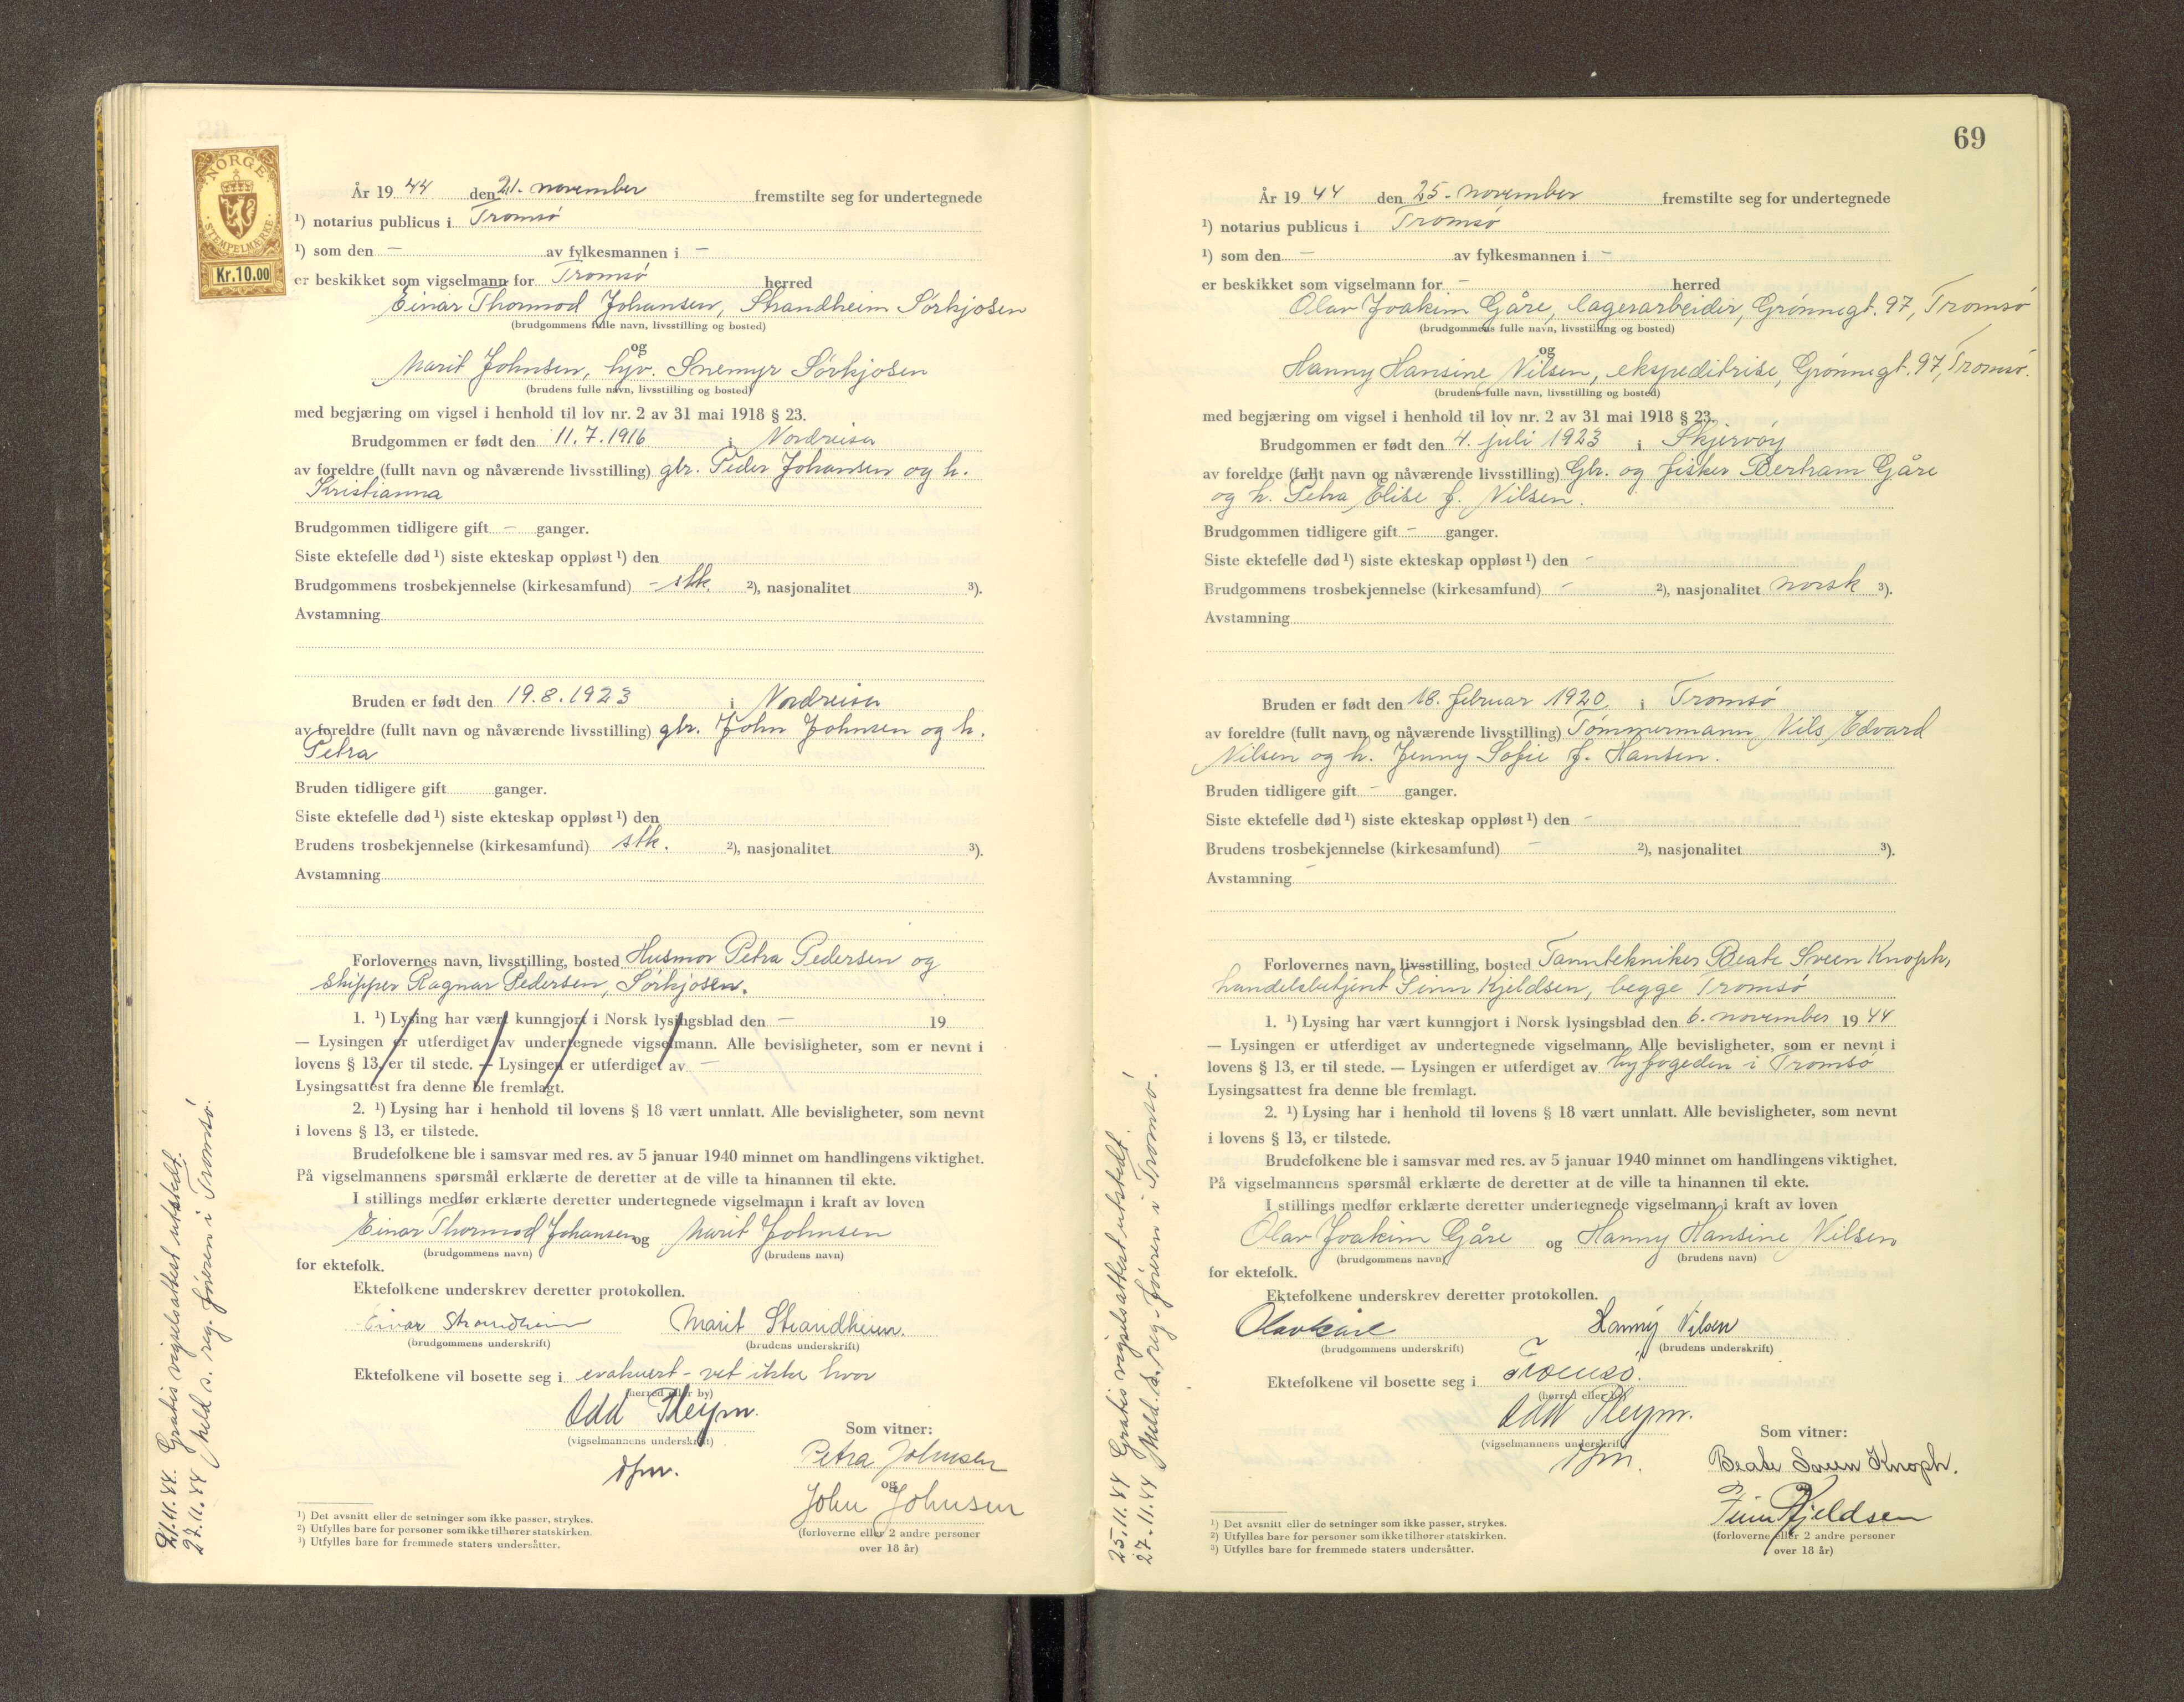 NORGE
STEMPELMERKE
Kr.10.00
År 1944 den 21. november fremstilte seg for undertegnede
¹) notarius publicus i Tromsø
¹) som den – av fylkesmannen i –
er beskikket som vigselmann for Tromsø herred
Einar Thormod Johansen, Strandheim Sørkjosen
(brudgommens fulle navn, livsstilling og bosted)
og
Marit Johnsen, hjv. Snemyr Sørkjosen
(brudens fulle navn, livsstilling og bosted)
med begjæring om vigsel i henhold til lov nr. 2 av 31 mai 1918 § 23.
Brudgommen er født den 11.7.1916 i Nordreisa
av foreldre (fullt navn og nåværende livsstilling) gbr. Peder Johansen og h.
Kristianna
Brudgommen tidligere gift – ganger.
Siste ektefelle død ¹) siste ekteskap oppløst ¹) den
Brudgommens trosbekjennelse (kirkesamfund) – stk. ²), nasjonalitet ³).
Avstamning
Bruden er født den 19.8.1923 i Nordreisa
av foreldre (fullt navn og nåværende livsstilling) gbr. John Johnsen og h.
Petra
Bruden tidligere gift ganger.
Siste ektefelle død ¹) siste ekteskap oppløst ¹) den
Brudens trosbekjennelse (kirkesamfund) stk. ²), nasjonalitet ³).
Avstamning
Forlovernes navn, livsstilling, bosted Husmor Petra Pedersen og
skipper Ragnar Pedersen, Sørkjosen.
1. ¹) Lysing har vært kunngjort i Norsk lysingsblad den – 19
— Lysingen er utferdiget av undertegnede vigselmann. Alle bevisligheter, som er nevnt i
lovens § 13, er til stede. — Lysingen er utferdiget av –
Lysingsattest fra denne ble fremlagt.
2. ¹) Lysing har i henhold til lovens § 18 vært unnlatt. Alle bevisligheter, som nevnt
i lovens § 13, er tilstede.
Brudefolkene ble i samsvar med res. av 5 januar 1940 minnet om handlingens viktighet.
På vigselmannens spørsmål erklærte de deretter at de ville ta hinannen til ekte.
I stillings medfør erklærte deretter undertegnede vigselmann i kraft av loven
Einar Thormod Johansen og Marit Johnsen
(brudgommens navn) (brudens navn)
for ektefolk.
Ektefolkene underskrev deretter protokollen.
Einar Strandheim Marit Strandheim.
(brudgommens underskrift) (brudens underskrift)
Ektefolkene vil bosette seg i evakuert – vet ikke hvor
(herred eller by)
Odd Pleym.
(vigselmannens underskrift)
Som vitner:
Petra Johnsen
og
John Johnsen
(forloverne eller 2 andre personer
over 18 år)
¹) Det avsnitt eller de setninger som ikke passer, strykes.
²) Utfylles bare for personer som ikke tilhører statskirken.
³) Utfylles bare for fremmede staters undersåtter.
21.11.44. Gratis vigselsattest utstedt.
22.11.44 Meld. s. reg. føreren i Tromsø.
69
År 1944 den 25. november fremstilte seg for undertegnede
¹) notarius publicus i Tromsø
¹) som den – av fylkesmannen i –
er beskikket som vigselmann for – herred
Olav Joakim Gåre, lagerarbeider, Grønnegt. 97, Tromsø
(brudgommens fulle navn, livsstilling og bosted)
og
Hanny Hansine Nilsen, ekspeditrise, Grønnegt. 97, Tromsø.
(brudens fulle navn, livsstilling og bosted)
med begjæring om vigsel i henhold til lov nr. 2 av 31 mai 1918 § 23.
Brudgommen er født den 4. juli 1923 i Skjervøy
av foreldre (fullt navn og nåværende livsstilling) Gbr. og fisker Bertram Gåre
og h. Petra Elise f. Nilsen.
Brudgommen tidligere gift – ganger.
Siste ektefelle død ¹) siste ekteskap oppløst ¹) den –
Brudgommens trosbekjennelse (kirkesamfund) – ²), nasjonalitet norsk ³).
Avstamning
Bruden er født den 18. februar 1920. i Tromsø
av foreldre (fullt navn og nåværende livsstilling) Tømmermann Nils Edvard
Nilsen og h. Jenny Sofie f. Hansen.
Bruden tidligere gift – ganger.
Siste ektefelle død ¹) siste ekteskap oppløst ¹) den –
Brudens trosbekjennelse (kirkesamfund) – ²), nasjonalitet ³).
Avstamning –
Forlovernes navn, livsstilling, bosted Tanntekniker Beate Sveen Knoph,
handelsbetjent Finn Kjeldsen, begge Tromsø
1. ¹) Lysing har vært kunngjort i Norsk lysingsblad den 6. november 1944
— Lysingen er utferdiget av undertegnede vigselmann. Alle bevisligheter, som er nevnt i
lovens § 13, er til stede. — Lysingen er utferdiget av byfogeden i Tromsø
Lysingsattest fra denne ble fremlagt.
2. ¹) Lysing har i henhold til lovens § 18 vært unnlatt. Alle bevisligheter, som nevnt
i lovens § 13, er tilstede.
Brudefolkene ble i samsvar med res. av 5 januar 1940 minnet om handlingens viktighet.
På vigselmannens spørsmål erklærte de deretter at de ville ta hinannen til ekte.
I stillings medfør erklærte deretter undertegnede vigselmann i kraft av loven
Olav Joakim Gåre og Hanny Hansine Nilsen
(brudgommens navn) (brudens navn)
for ektefolk.
Ektefolkene underskrev deretter protokollen.
Olav Gåre Hanny Nilsen
(brudgommens underskrift) (brudens underskrift)
Ektefolkene vil bosette seg i Tromsø.
(herred eller by)
Odd Pleym.
(vigselmannens underskrift)
Som vitner:
Beate Sveen Knoph.
og
Finn Kjeldsen
(forloverne eller 2 andre personer
over 18 år)
¹) Det avsnitt eller de setninger som ikke passer, strykes.
²) Utfylles bare for personer som ikke tilhører statskirken.
³) Utfylles bare for fremmede staters undersåtter.
25.11.44 Gratis vigselsattest utstedt.
27.11.44 Meld. s. reg. føreren i Tromsø.